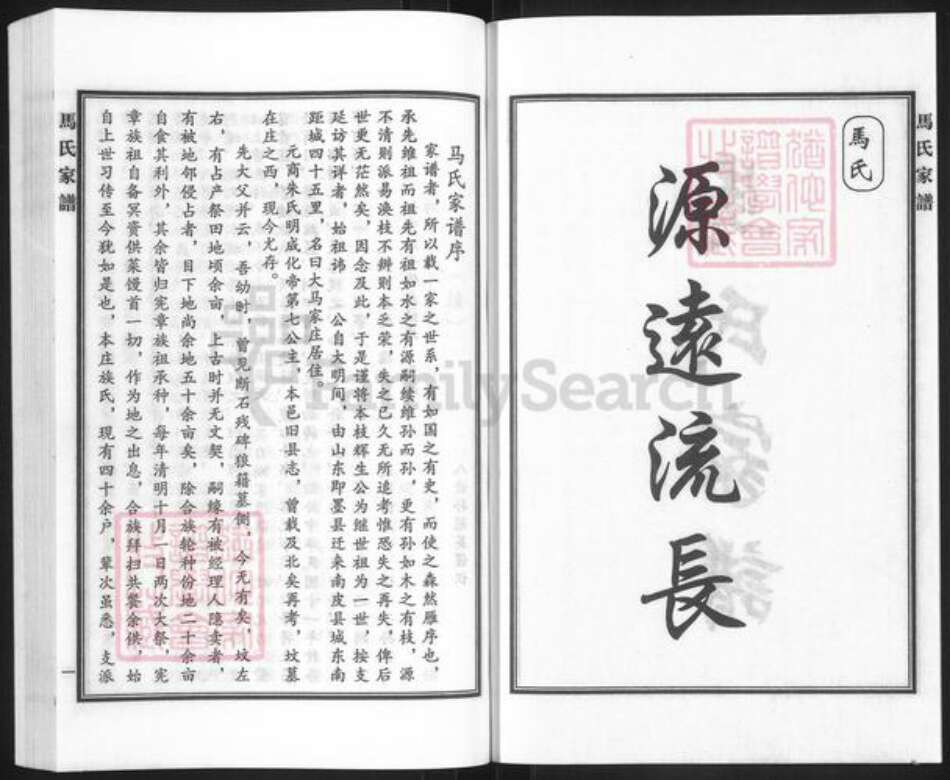 馬氏家譜
馬氏
源遠流長
马氏家谱序
家谱者，所以载一家之世系，有如国之有史，而使之森然雁序也，
承先维祖而祖先有祖如水之有源嗣续维孙而孙，更有孙如木之有枝，源
不清则派易涣枝不辨则本乏荣，失之已久无所追考惟恐失之再失，俾后
世更无茫然矣，因念及此，于是谨将本枝辉生公为继世祖为一世，按支
延访其详者，始祖讳 公自大明间，由山东即墨县迁来南皮县城东南
距城四十五里，名曰大马家庄居住。
元商朱氏明成化帝第七公主，本邑旧县志，曾载及北矣再考，坟墓
在庄之西，现今尤存。
先大父并云，吾幼时，曾见断石残碑狼籍墓侧，今无有矣，坟左
右，有占产祭田地顷余亩，上古时并无文契，嗣缘有被经理人隐卖者，
有被地邻侵占者，目下地尚余地五十余亩矣，除合族轮种份地二十余亩
自食其利外，其余皆归宪章族祖承种，每年清明十月一日两次大祭，宪
章族祖自备冥资供菜馒首一切，作为地之出息，合族拜扫共飨余供，始
自上世习传至今犹如是也，本庄族氏，现有四十余户，辈次虽悉，支派
馬氏家譜
一
FamilySearch